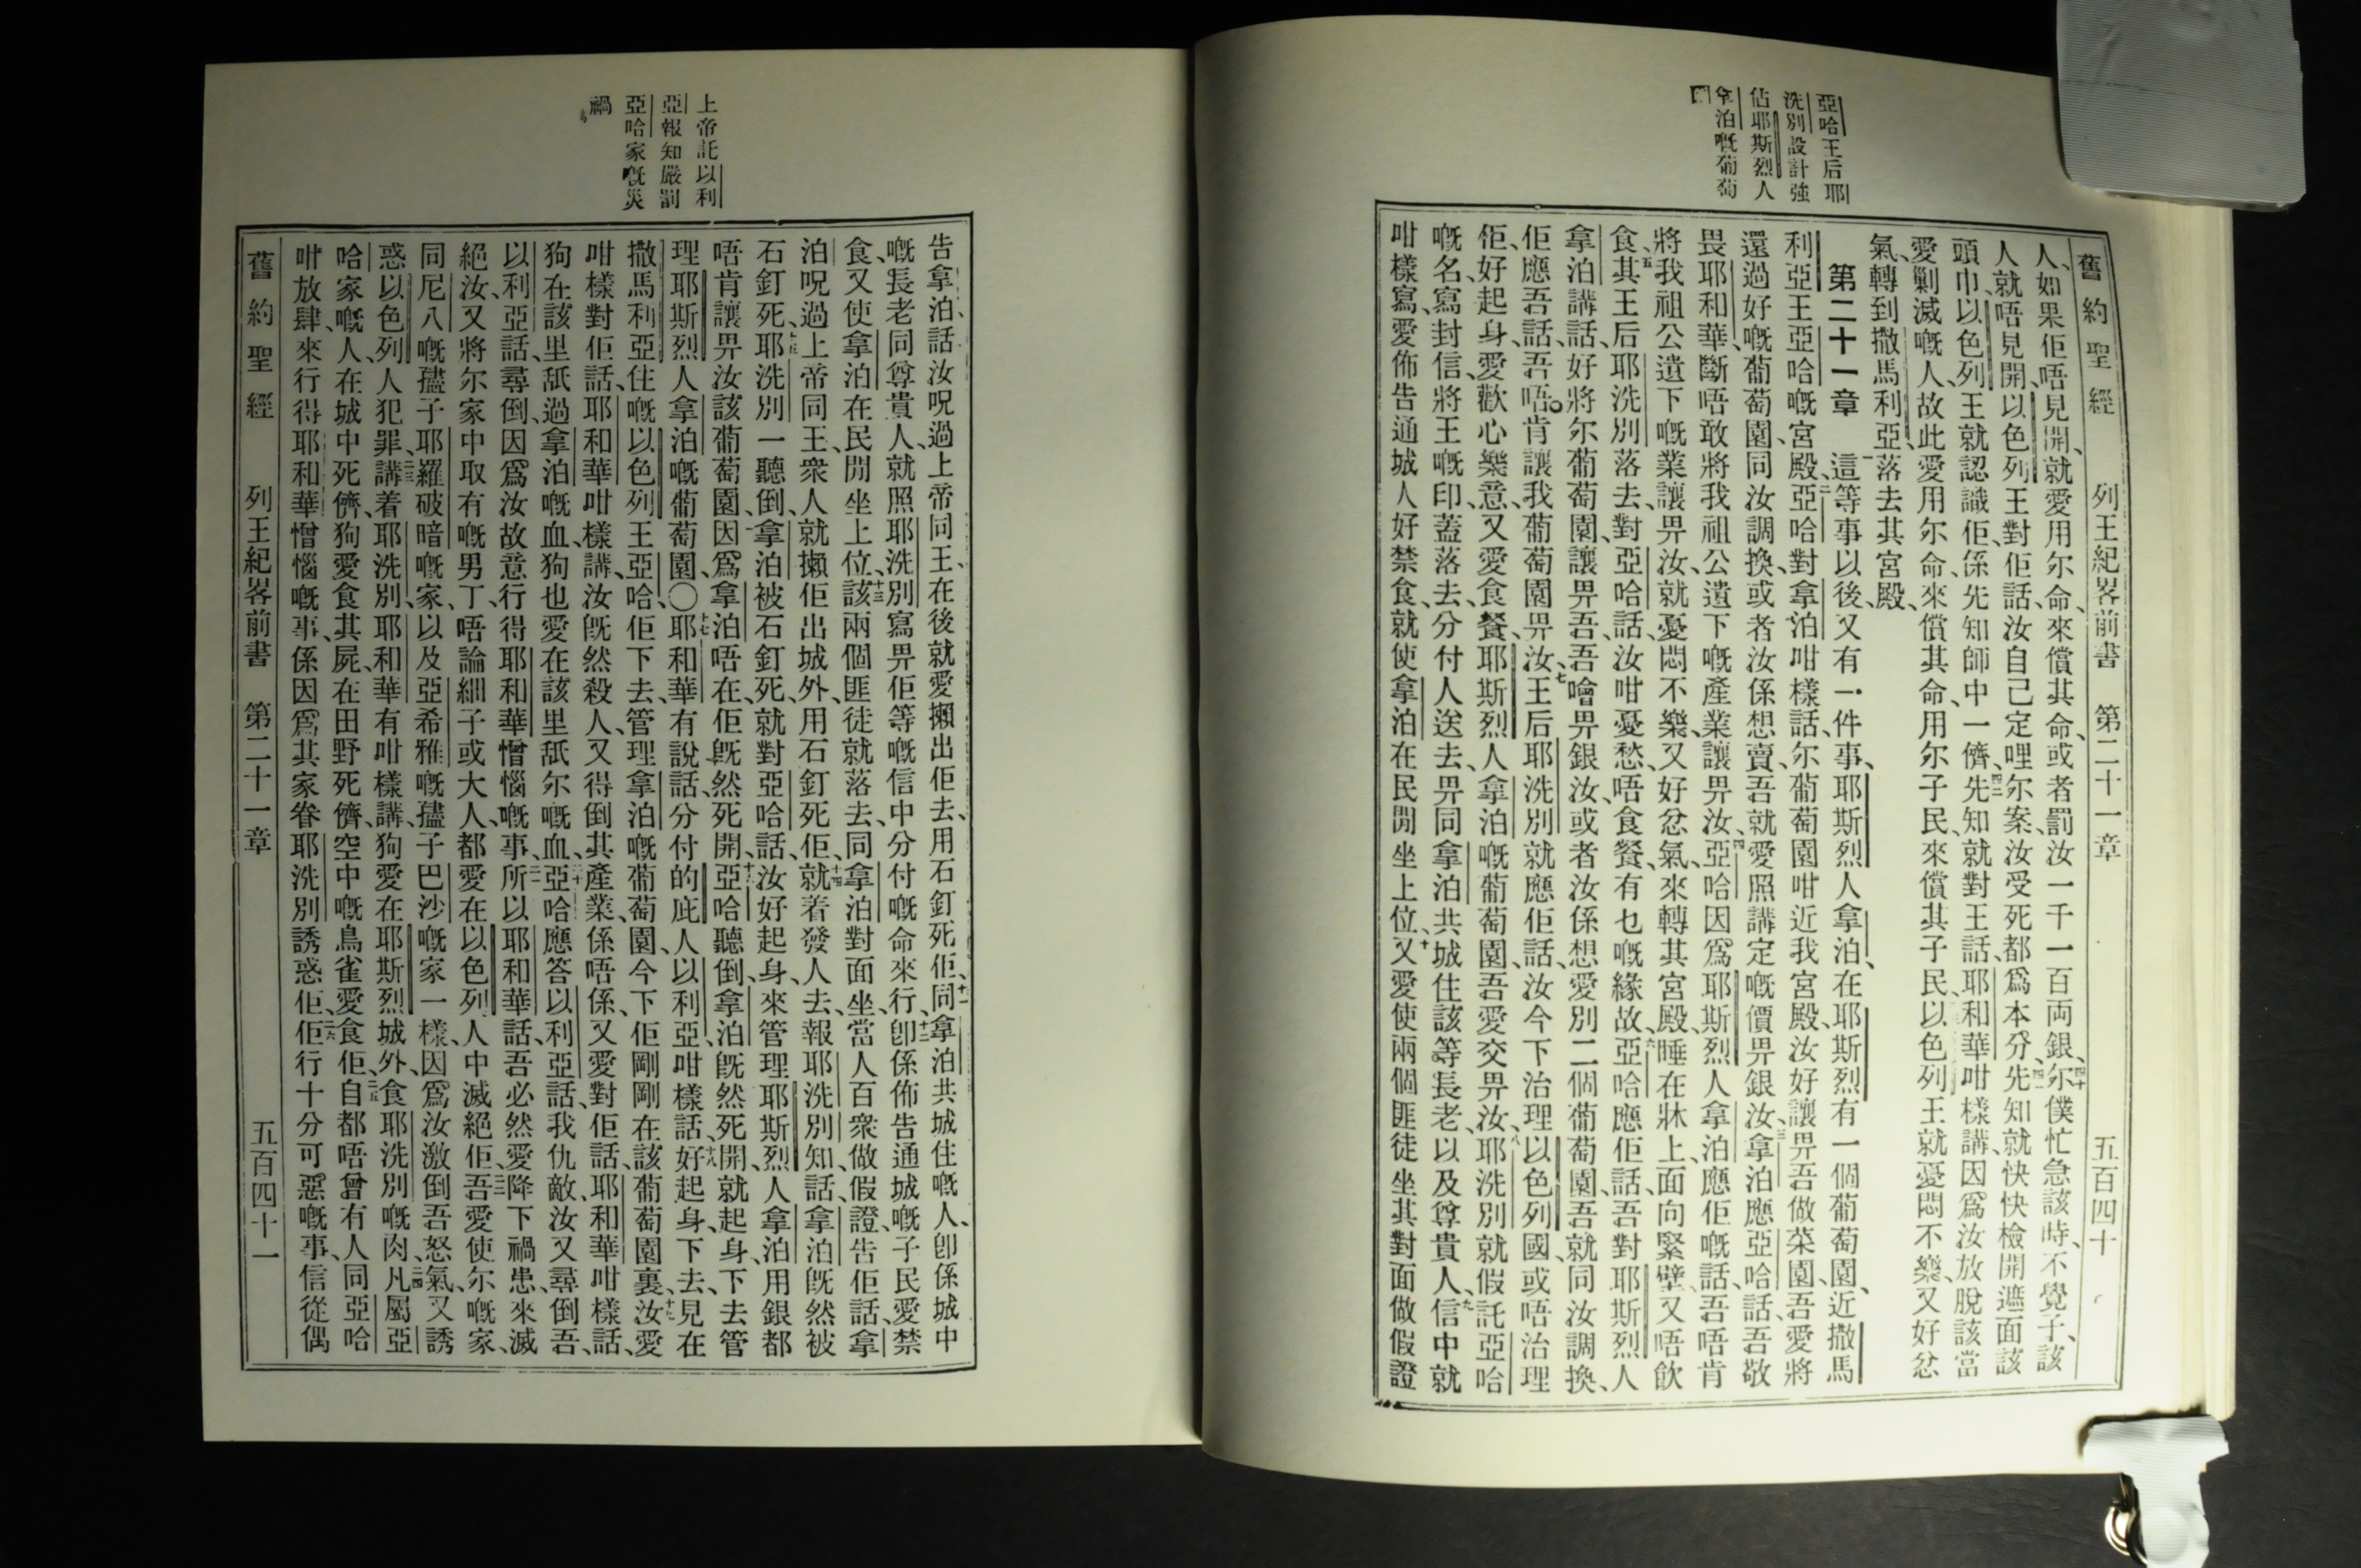 亞哈王后耶
洗別設計強
佔耶斯烈人
拿泊嘅葡萄
園
舊約聖經 列王紀畧前書 第二十一章 五百四十
人、如果佢唔見開、就愛用尔命、來償其命、或者罰汝一千一百両銀、四十尔僕忙急該時、不覺子、該
人就唔見開、以色列王對佢話、汝自己定哩尔案、汝受死都爲本分、四一先知就快快檢開遮面該
頭巾、以色列王就認識佢、係先知師中一儕、四二先知就對王話、耶和華咁樣講、因爲汝放脫該當
愛剿滅嘅人、故此愛用尔命、來償其命、用尔子民、來償其子民、以色列王就憂悶不樂、又好忿
氣、轉到撒馬利亞、落去其宮殿、
第二十一章 一這等事以後、又有一件事、耶斯烈人拿泊、在耶斯烈有一個葡萄園、近撒馬
利亞王亞哈嘅宮殿、二亞哈對拿泊咁樣話、尔葡萄園咁近我宮殿、汝好讓畀吾做菜園、吾愛將
還過好嘅葡萄園、同汝調換、或者汝係想賣、吾就愛照講定嘅價畀銀汝、三拿泊應亞哈話、吾敬
畏耶和華、斷唔敢將我祖公遺下嘅產業、讓畀汝、四亞哈因爲耶斯烈人拿泊應佢嘅話、吾唔肯
將我祖公遺下嘅業讓畀汝、就憂悶不樂、又好忿氣、來轉其宮殿、睡在牀上、面向緊壁、又唔飲
食、五其王后耶洗別落去、對亞哈話、汝咁憂愁、唔食餐、有乜嘅緣故、六亞哈應佢話、吾對耶斯烈人
拿泊講話、好將尔葡萄園、讓畀吾、吾噲畀銀汝、或者汝係想愛別二個葡萄園、吾就同汝調換、
佢應吾話、吾唔肯讓我葡萄園畀汝、七王后耶洗別就應佢話、汝今下治理以色列國、或唔治理
佢、好起身、愛歡心樂意、又愛食餐、耶斯烈人拿泊嘅葡萄園、吾愛交畀汝、八耶洗別就假託亞哈
嘅名、寫封信、將王嘅印、蓋落去、分付人送去、畀同拿泊共城住該等長老、以及尊貴人、九信中就
咁樣寫、愛佈告通城人好禁食、就使拿泊在民閒坐上位、十又愛使兩個匪徒坐其對面做假證
上帝託以利
亞報知嚴罰
亞哈家嘅災
禍
告拿泊、話汝呪過上帝同王、在後就愛攋出佢去、用石釘死佢、十一同拿泊共城住嘅人、卽係城中
嘅長老同尊貴人、就照耶洗別寫畀佢等嘅信中分付嘅命來行、十二卽係佈告通城嘅子民愛禁
食、又使拿泊在民閒坐上位、十三該兩個匪徒就落去、同拿泊對面坐、當人百衆做假證、告佢話、拿
泊呪過上帝同王、衆人就攋佢出城外、用石釘死佢、十四就着發人去、報耶洗別知、話拿泊旣然被
石釘死、十五耶洗別一聽倒、拿泊被石釘死、就對亞哈話、汝好起身、來管理耶斯烈人拿泊用銀都
唔肯讓畀汝該葡萄園、因爲拿泊唔在、佢旣然死開、十六亞哈聽倒、拿泊旣然死開、就起身、下去管
理耶斯烈人拿泊嘅葡萄園、〇十七耶和華有說話、分付的庇人以利亞咁樣話、十八好起身、下去、見在
撒馬利亞住嘅以色列王亞哈、佢下去、管理拿泊嘅葡萄園、今下佢剛剛在該葡萄園裏、十九汝愛
咁樣對佢話、耶和華咁樣講、汝旣然殺人、又得倒其產業、係唔係、又愛對佢話、耶和華咁樣話、
狗在該里舐過拿泊嘅血、狗也愛在該里舐尔嘅血、二十亞哈應答以利亞話、我仇敵、汝又尋倒吾、
以利亞話、尋倒、因爲汝故意行得耶和華憎惱嘅事、二一所以耶和華話、吾必然愛降下禍患、來滅
絕汝、又將尔家中取有嘅男丁、唔論細子或大人、都愛在以色列人中滅絕佢、二二吾愛使尔嘅家、
同尼八嘅孻子耶羅破暗嘅家、以及亞希雅嘅孻子巴沙嘅家一樣、因爲汝激倒吾怒氣、又誘
惑以色列人犯罪、二三講着耶洗別、耶和華有咁樣講、狗愛在耶斯烈城外、食耶洗別嘅肉、二四凡屬亞
哈家嘅人、在城中死儕、狗愛食其屍、在田野死儕、空中嘅鳥雀愛食佢、二五自都唔曾有人同亞哈
咁放肆、來行得耶和華憎惱嘅事、係因爲其家眷耶洗別誘惑佢、二六佢行十分可惡嘅事、信從偶
舊約聖經 列王紀畧前書 第二十一章 五百四十一